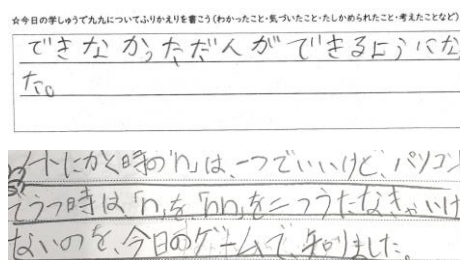 ☆今日の学しゅうで九九についてふりかえりを書こう(わかったこと・気づいたこと・たしかめられたこと・考えたことなど)
できなかっただんができるようにな
た。
ノートにかく時の「n」は、一つでいいけど、パソコン
でうつ時は「n」を「nn」を二つうたなきゃいけ
ないのを、今日のゲームで、知りました。